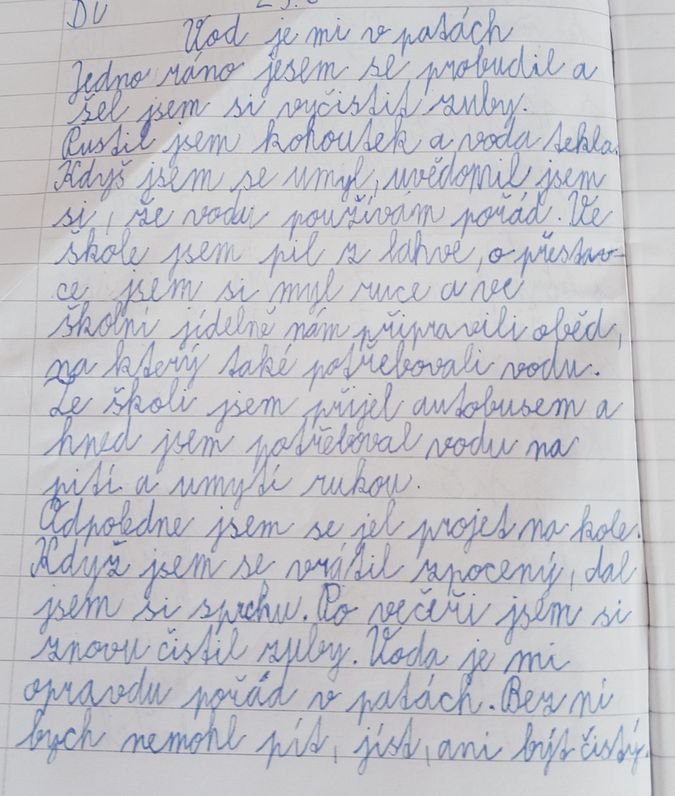 DÚ
Vod je mi v patách
Jedno ráno jesem se probudil a
šel jsem si vyčistit zuby.
Pustil jsem kohoutek a voda tekla.
Kdyš jsem se umyl, uvědomil jsem
si, že vodu používám pořád. Ve
škole jsem pil z lahve, o přestav-
ce jsem si myl ruce a ve
školní jídelně nám připravili oběd,
na který také potřebovali vodu.
Ze školi jsem přijel autobusem a
hned jsem potřeboval vodu na
pití a umytí rukou.
Odpoledne jsem se jel projet na kole.
Když jsem se vrátil zpocený, dal
jsem si sprchu. Po večeři jsem si
znovu čistil zuby. Voda je mi
opravdu pořád v patách. Bez ní
bych nemohl pít, jíst, ani být čistý.